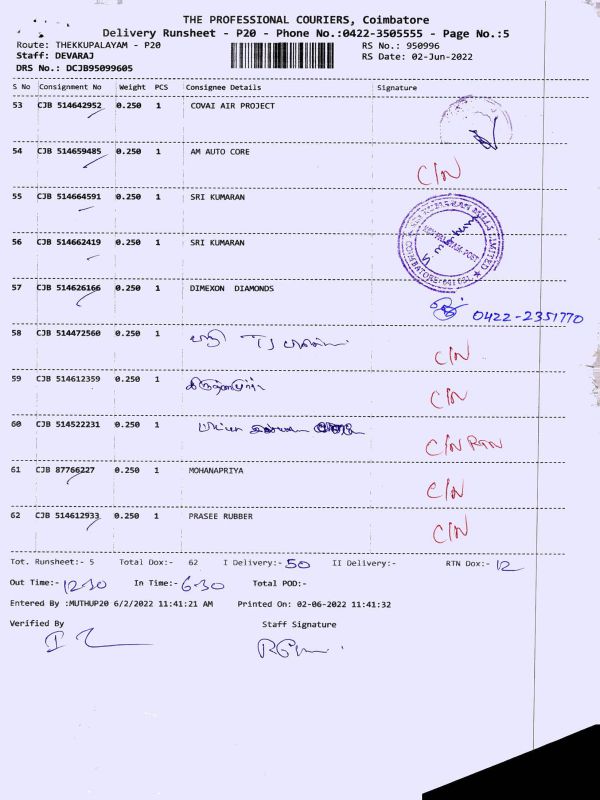 THE PROFESSIONAL COURIERS, Coimbatore
Delivery Runsheet - P20 - Phone No.:0422-3505555 - Page No.:5
Route: THEKKUPALAYAM - P20 RS No.: 950996
Staff: DEVARAJ RS Date: 02-Jun-2022
DRS No.: DCJB95099605
S No Consignment No Weight PCS Consignee Details Signature
53 CJB 514642952 0.250 1 COVAI AIR PROJECT
54 CJB 514659485 0.250 1 AM AUTO CORE C/N
55 CJB 514664591 0.250 1 SRI KUMARAN
56 CJB 514662419 0.250 1 SRI KUMARAN
57 CJB 514626166 0.250 1 DIMEXON DIAMONDS
0422-2351770
58 CJB 514472560 0.250 1 C/N
59 CJB 514612359 0.250 1 C/N
60 CJB 514522231 0.250 1 C/N RTN
61 CJB 87766227 0.250 1 MOHANAPRIYA C/N
62 CJB 514612933 0.250 1 PRASEE RUBBER C/N
Tot. Runsheet:- 5 Total Dox:- 62 I Delivery:- 50 II Delivery:- RTN Dox:- 12
Out Time:- 12-30 In Time:- 6-30 Total POD:-
Entered By :MUTHUP20 6/2/2022 11:41:21 AM Printed On: 02-06-2022 11:41:32
Verified By Staff Signature